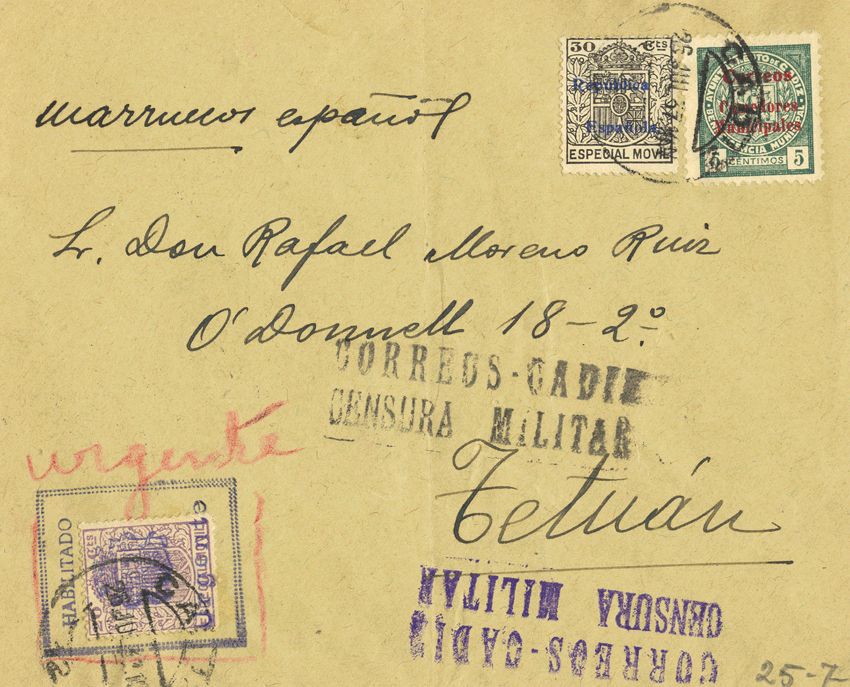 30 Cts
República
Española
ESPECIAL MOVIL
Correos
Comedores
Municipales
5 CENTIMOS 5
marruecos español
Sr. Don Rafael Moreno Ruiz
O'Donnell 18-2º
CORREOS-CADIZ
CENSURA MILITAR
Tetuán
urgente
HABILITADO
Urgente
CORREOS-CADIZ
CENSURA MILITAR
25-7